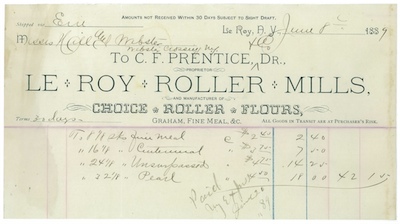 AMOUNTS NOT RECEIVED WITHIN 30 DAYS SUBJECT TO SIGHT DRAFT.
Shipped via Erie
Le Roy, N. Y. June 8th 1889
Webster
Webster Crossing NY
To C. F. PRENTICE, DR.,
PROPRIETOR
LE ROY ROLLER MILLS,
AND MANUFACTURER OF
CHOICE ROLLER FLOURS,
GRAHAM, FINE MEAL, &C.
Terms 30 days
ALL GOODS IN TRANSIT ARE AT PURCHASER'S RISK.
Fine Meal 2 40
" 16 " Centennial 7 50
" 24 " Unsurpassed 14 25
" 32 " Pearl 18 00 42 15
Paid
89